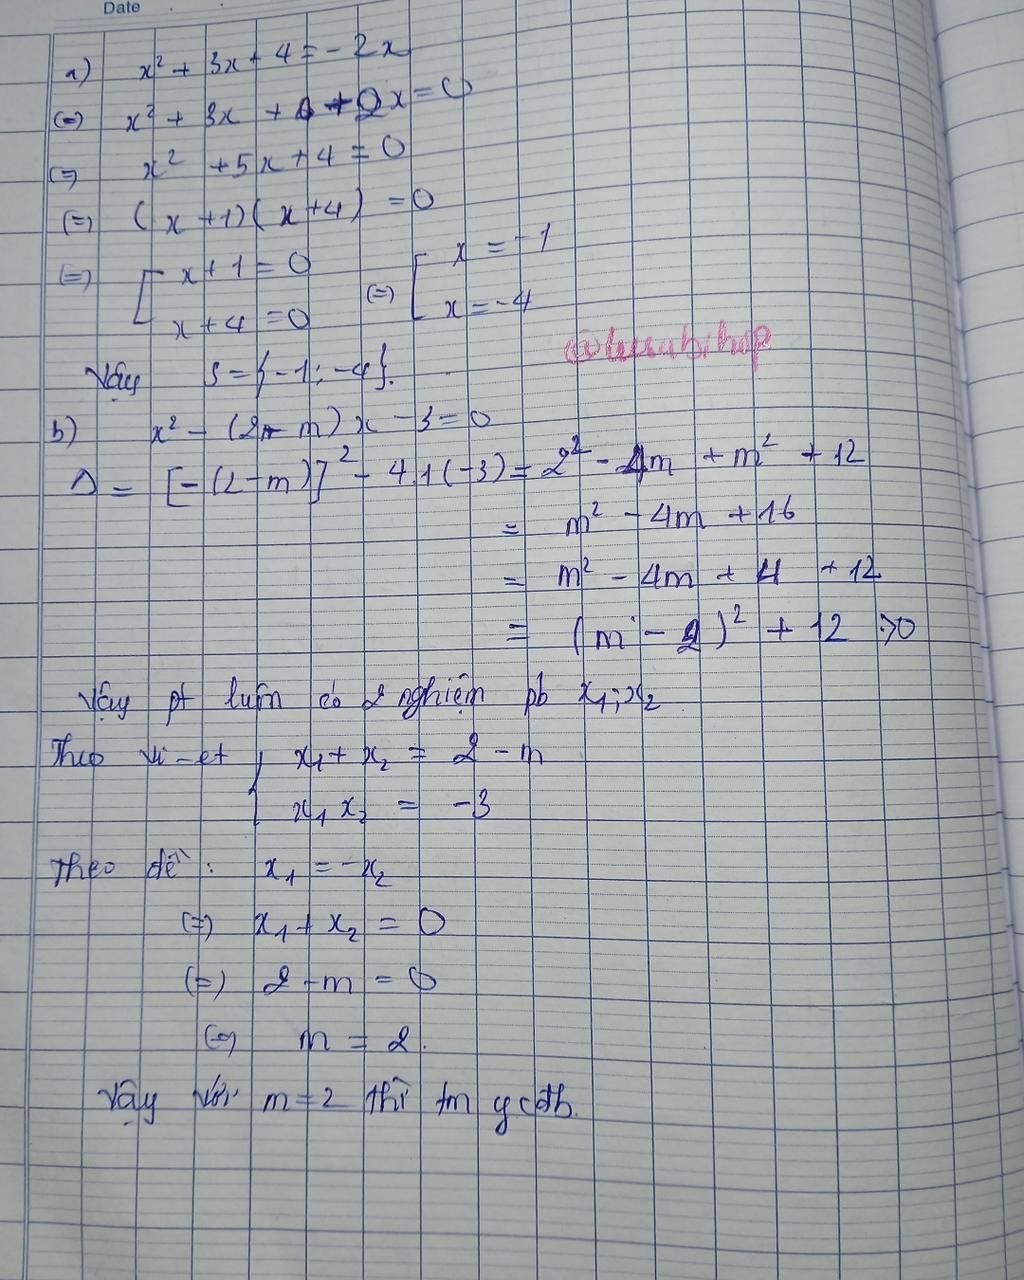 Date
a) x² + 3x + 4 = - 2x
(=) x² + 3x + 4 + 2x = 0
(=) x² + 5x + 4 = 0
(=) (x + 1)(x + 4) = 0
(=) [ x + 1 = 0 (=) [ x = -1
x + 4 = 0 x = -4
Vậy S = {-1; -4}.
b) x² - (2 - m)x - 3 = 0
Δ = [-(2-m)]² - 4.1(-3) = 2² - 4m + m² + 12
= m² - 4m + 16
= m² - 4m + 4 + 12
= (m - 2)² + 12 > 0
Vậy pt luôn có 2 nghiệm pb x₁; x₂
Theo vi-et { x₁ + x₂ = 2 - m
x₁ x₂ = -3
Theo đề: x₁ = -x₂
(=) x₁ + x₂ = 0
(=) 2 - m = 0
(=) m = 2.
Vậy với m = 2 thì tm ycđb.